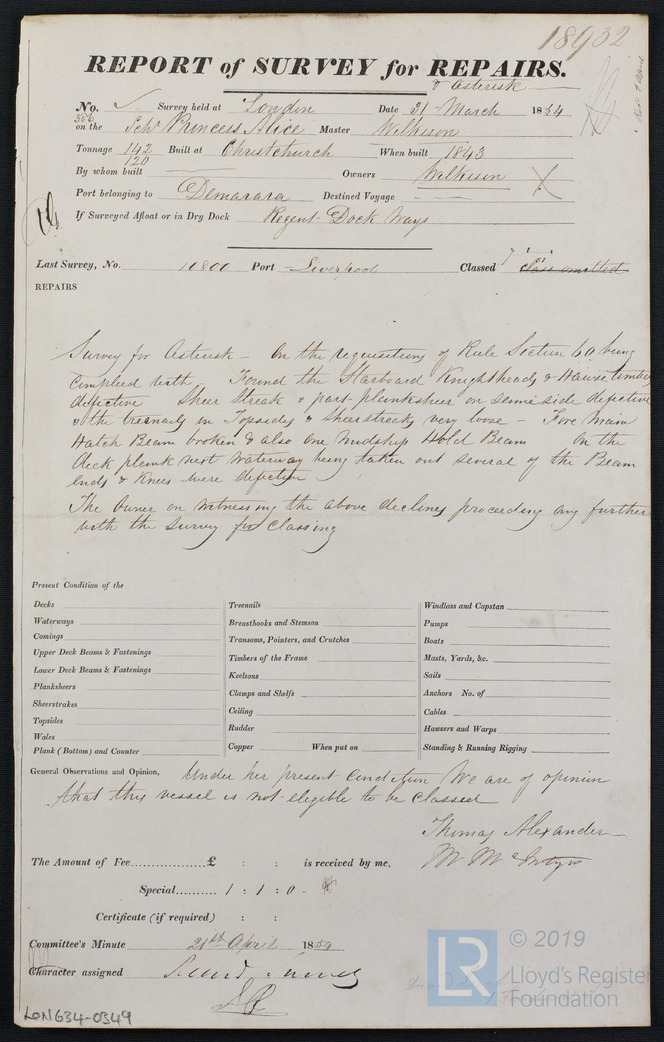 18932
REPORT of SURVEY for REPAIRS.
& Asterisk
No. 386 Survey held at London Date 31 March 1854
on the Schr Princess Alice Master Wilkison
Tonnage 142 120 Built at Christchurch When built 1843
By whom built Owners Wilkison
Port belonging to Demarara Destined Voyage
If Surveyed Afloat or in Dry Dock Regent Dock Ways
Last Survey, No. 10800 Port Liverpool Classed class omitted
REPAIRS
Survey for Asterisk – On the requisitions of Rule Section 60 being
complied with, Found the Starboard Knightheads & Hawse timber
defective Sheer Streak & part planksheer on same side defective
& the treenails in Topsides & sheerstreaks very loose – Fore Main
Hatch Beam broken & also one midship Hold Beam On the
deck plank next Waterway being taken out several of the Beam
ends & Knees were defective
The Owner on witnessing the above declines proceeding any further
with the survey for classing
Present Condition of the
Decks
Waterways
Comings
Upper Deck Beams & Fastenings
Lower Deck Beams & Fastenings
Planksheers
Sheerstrakes
Topsides
Wales
Plank (Bottom) and Counter
Treenails
Breasthooks and Stemson
Transoms, Pointers, and Crutches
Timbers of the Frame
Keelsons
Clamps and Shelfs
Ceiling
Rudder
Copper When put on
Windlass and Capstan
Pumps
Boats
Masts, Yards, &c.
Sails
Anchors No. of
Cables
Hawsers and Warps
Standing & Running Rigging
General Observations and Opinion, Under her present condition We are of opinion
that this vessel is not eligible to be classed
Thomas Alexander
The Amount of Fee.................£ : : is received by me,
Special.......... 1 : 1 : 0
Certificate (if required) : :
Committee's Minute 21st April 1854
Character assigned
LON634-0349
LR
© 2019
Lloyd's Register
Foundation